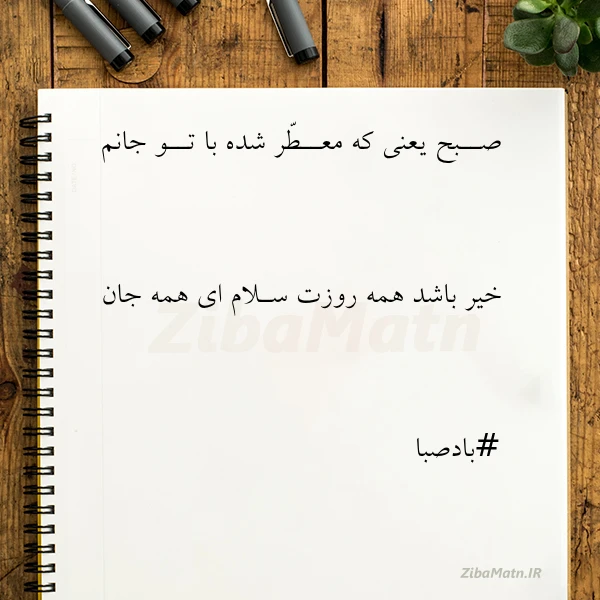 صـــبح یعنی که معـــطّر شده با تـــو جانم
خیر باشد همه روزت ســلام ای همه جان
ZibaMatn
#بادصبا
ZibaMatn.IR